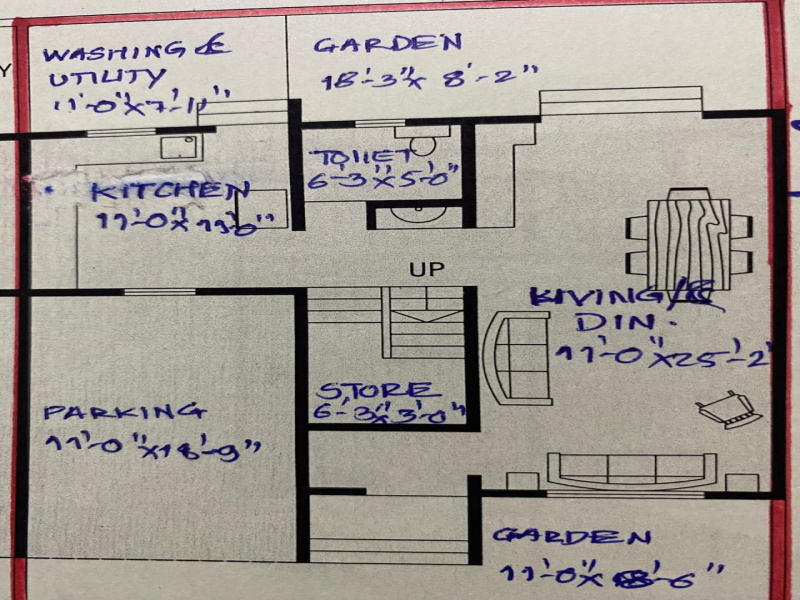 WASHING &
UTILITY
11'-0"x7'-11"
GARDEN
18'-3"x 8'-2"
Y
TOILET
6'-3"x5'-0"
KITCHEN
11'-0"x
UP
LIVING/&
DIN.
11'-0"x25'-2"
STORE
6'-3"x3'-0"
PARKING
11'-0"x18'-9"
GARDEN
11'-0"x 8'-6"